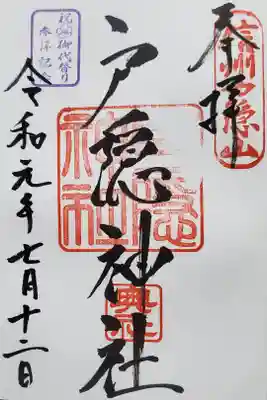 信州戸隠山
奉拝
戸隠神社
戸隠神社
奥社
御代替り
参拝記念
令和元年七月十二日